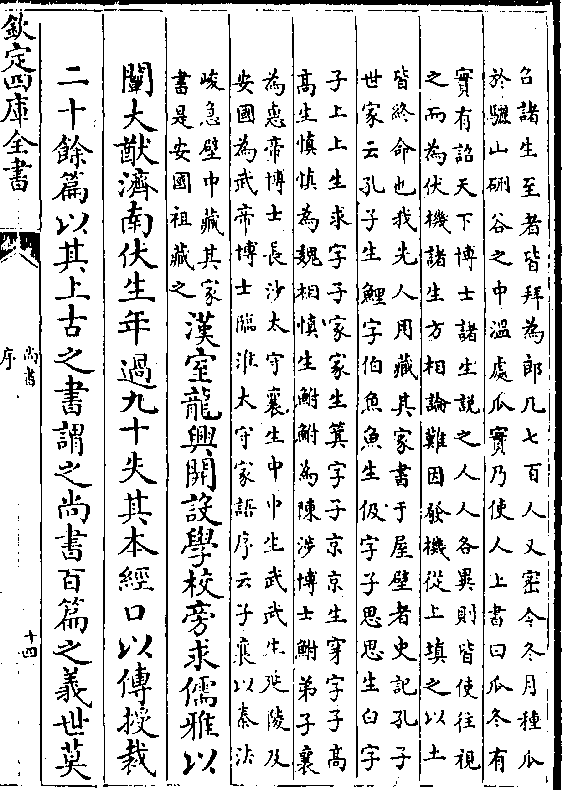 召諸生至者皆拜為郎凡七百人又密令冬月種瓜
於驪山硎谷之中溫處瓜實乃使人上書曰瓜冬有
實有詔天下博士諸生說之人人各異則皆使往視
之而為伏機諸生方相論難因發機從上填之以土
皆終命也我先人用藏其家書于屋壁者史記孔子
世家云孔子生鯉字伯魚魚生伋字子思思生白字
子上上生求字子家家生箕字子京京生穿字子高
高生慎慎為魏相慎生鮒鮒為陳涉博士鮒弟子襄
為惠帝博士長沙太守襄生中中生武武生延陵及
安國為武帝博士臨淮太守家語序云子襄以秦法
峻急壁中藏其家
書是安國祖藏之
漢室龍興開設學校旁求儒雅以
闡大猷濟南伏生年過九十失其本經口以傳授裁
二十餘篇以其上古之書謂之尚書百篇之義世莫
欽定四庫全書
尚書
序
十四